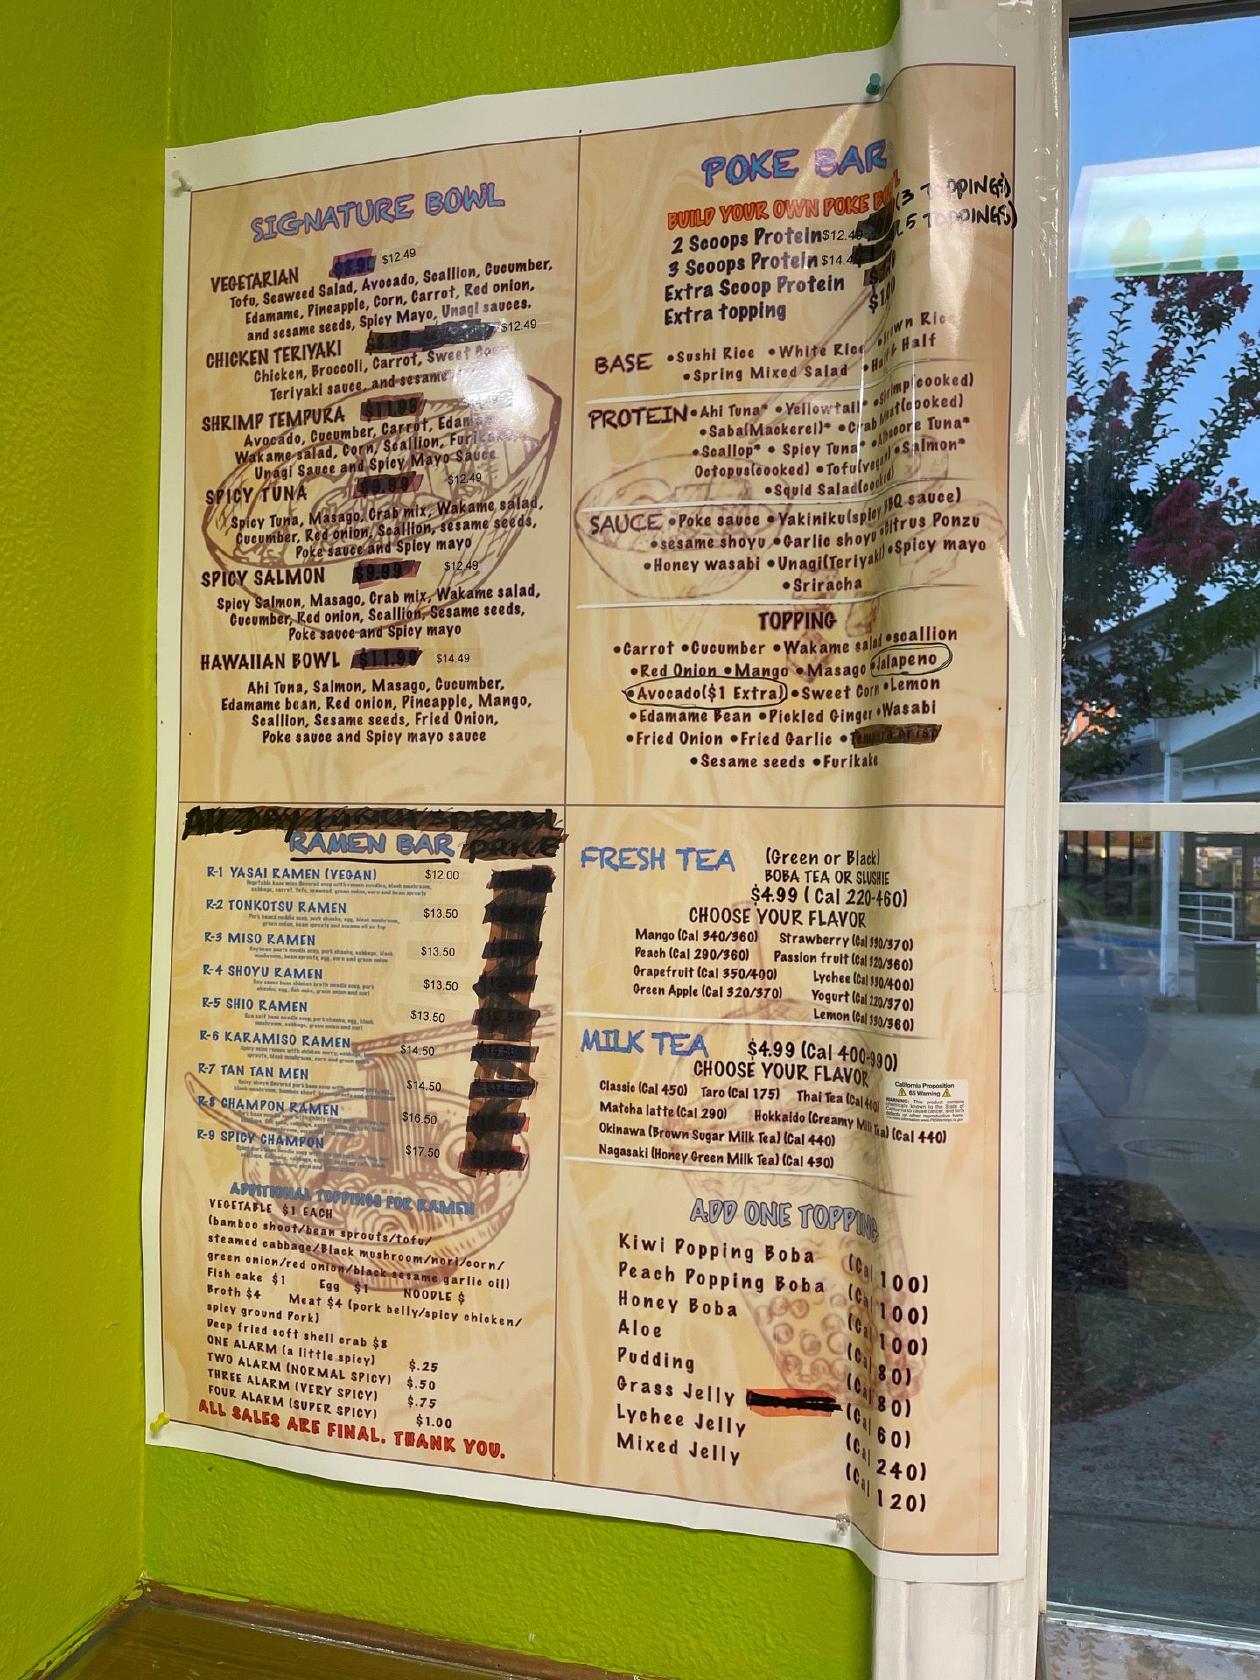 SIGNATURE BOWL
VEGETARIAN $12.49
Tofu, Seaweed Salad, Avocado, Scallion, Cucumber,
Edamame, Pineapple, Corn, Carrot, Red onion,
and sesame seeds, Spicy Mayo, Unagi sauces.
CHICKEN TERIYAKI $8.99 $12.49
Chicken, Broccoli, Carrot, Sweet
Teriyaki sauce, and sesame
SHRIMP TEMPURA $11.99
Avocado, Cucumber, Carrot,
Wakame salad, Corn, Scallion,
Unagi Sauce and Spicy Mayo Sauce
SPICY TUNA $9.99 $12.49
Spicy Tuna, Masago, Crab mix, Wakame salad,
Cucumber, Red onion, Scallion, sesame seeds,
Poke sauce and Spicy mayo
SPICY SALMON $9.99 $12.49
Spicy Salmon, Masago, Crab mix, Wakame salad,
Cucumber, Red onion, Scallion, Sesame seeds,
Poke sauce and Spicy mayo
HAWAIIAN BOWL $11.99 $14.49
Ahi Tuna, Salmon, Masago, Cucumber,
Edamame bean, Red onion, Pineapple, Mango,
Scallion, Sesame seeds, Fried Onion,
Poke sauce and Spicy mayo sauce
POKE BAR
BUILD YOUR OWN POKE
2 Scoops Protein $12.49 (3 TOPPINGS)
3 Scoops Protein $14.4 5 TOPPINGS)
Extra Scoop Protein
Extra topping
BASE •Sushi Rice •White Rice
•Spring Mixed Salad •Half & Half
PROTEIN •Ahi Tuna* •Yellowtail* •Shrimp(cooked)
•Saba(Mackerel)* •Crab Meat(cooked)
•Scallop* •Spicy Tuna* •Albacore Tuna*
Octopus(cooked) •Tofu(vegan) •Salmon*
•Squid Salad(cooked)
SAUCE •Poke sauce •Yakiniku(spicy BBQ sauce)
•sesame shoyu •Garlic shoyu •Citrus Ponzu
•Honey wasabi •Unagi(Teriyaki) •Spicy mayo
•Sriracha
TOPPING
•Carrot •Cucumber •Wakame salad •scallion
•Red Onion •Mango •Masago •Jalapeno
•Avocado($1 Extra) •Sweet Corn •Lemon
•Edamame Bean •Pickled Ginger •Wasabi
•Fried Onion •Fried Garlic •Tempura Crisp
•Sesame seeds •Furikake
ALL DAY LUNCH SPECIAL
RAMEN BAR PRICE
R-1 YASAI RAMEN (VEGAN) $12.00
R-2 TONKOTSU RAMEN $13.50
R-3 MISO RAMEN $13.50
R-4 SHOYU RAMEN $13.50
R-5 SHIO RAMEN $13.50
R-6 KARAMISO RAMEN $14.50
R-7 TAN TAN MEN $14.50
R-8 CHAMPON RAMEN $16.50
R-9 SPICY CHAMPON $17.50
ADDITIONAL TOPPINGS FOR RAMEN
VEGETABLE $1 EACH
(bamboo shoot/bean sprouts/tofu/
steamed cabbage/Black mushroom/nori/corn/
green onion/red onion/black sesame garlic oil)
Fish cake $1 Egg $1 NOODLE $
Broth $4 Meat $4 (pork belly/spicy chicken/
spicy ground Pork)
Deep fried soft shell crab $8
ONE ALARM (a little spicy) $.25
TWO ALARM (NORMAL SPICY) $.50
THREE ALARM (VERY SPICY) $.75
FOUR ALARM (SUPER SPICY) $1.00
ALL SALES ARE FINAL. THANK YOU.
FRESH TEA (Green or Black)
BOBA TEA OR SLUSHIE
$4.99 ( Cal 220-460)
CHOOSE YOUR FLAVOR
Mango (Cal 340/360) Strawberry (Cal 330/370)
Peach (Cal 290/360) Passion fruit (Cal 320/360)
Grapefruit (Cal 350/400) Lychee (Cal 330/400)
Green Apple (Cal 320/370) Yogurt (Cal 220/370)
Lemon (Cal 330/360)
MILK TEA $4.99 (Cal 400-990)
CHOOSE YOUR FLAVOR
Classic (Cal 450) Taro (Cal 175) Thai Tea (Cal 440)
Matcha latte (Cal 290) Hokkaido (Creamy Milk Tea) (Cal 440)
Okinawa (Brown Sugar Milk Tea) (Cal 440)
Nagasaki (Honey Green Milk Tea) (Cal 430)
California Proposition
65 Warning
ADD ONE TOPPING
Kiwi Popping Boba (Cal 100)
Peach Popping Boba (Cal 100)
Honey Boba (Cal 100)
Aloe (Cal 80)
Pudding (Cal 80)
Grass Jelly (Cal 60)
Lychee Jelly (Cal 240)
Mixed Jelly (Cal 120)